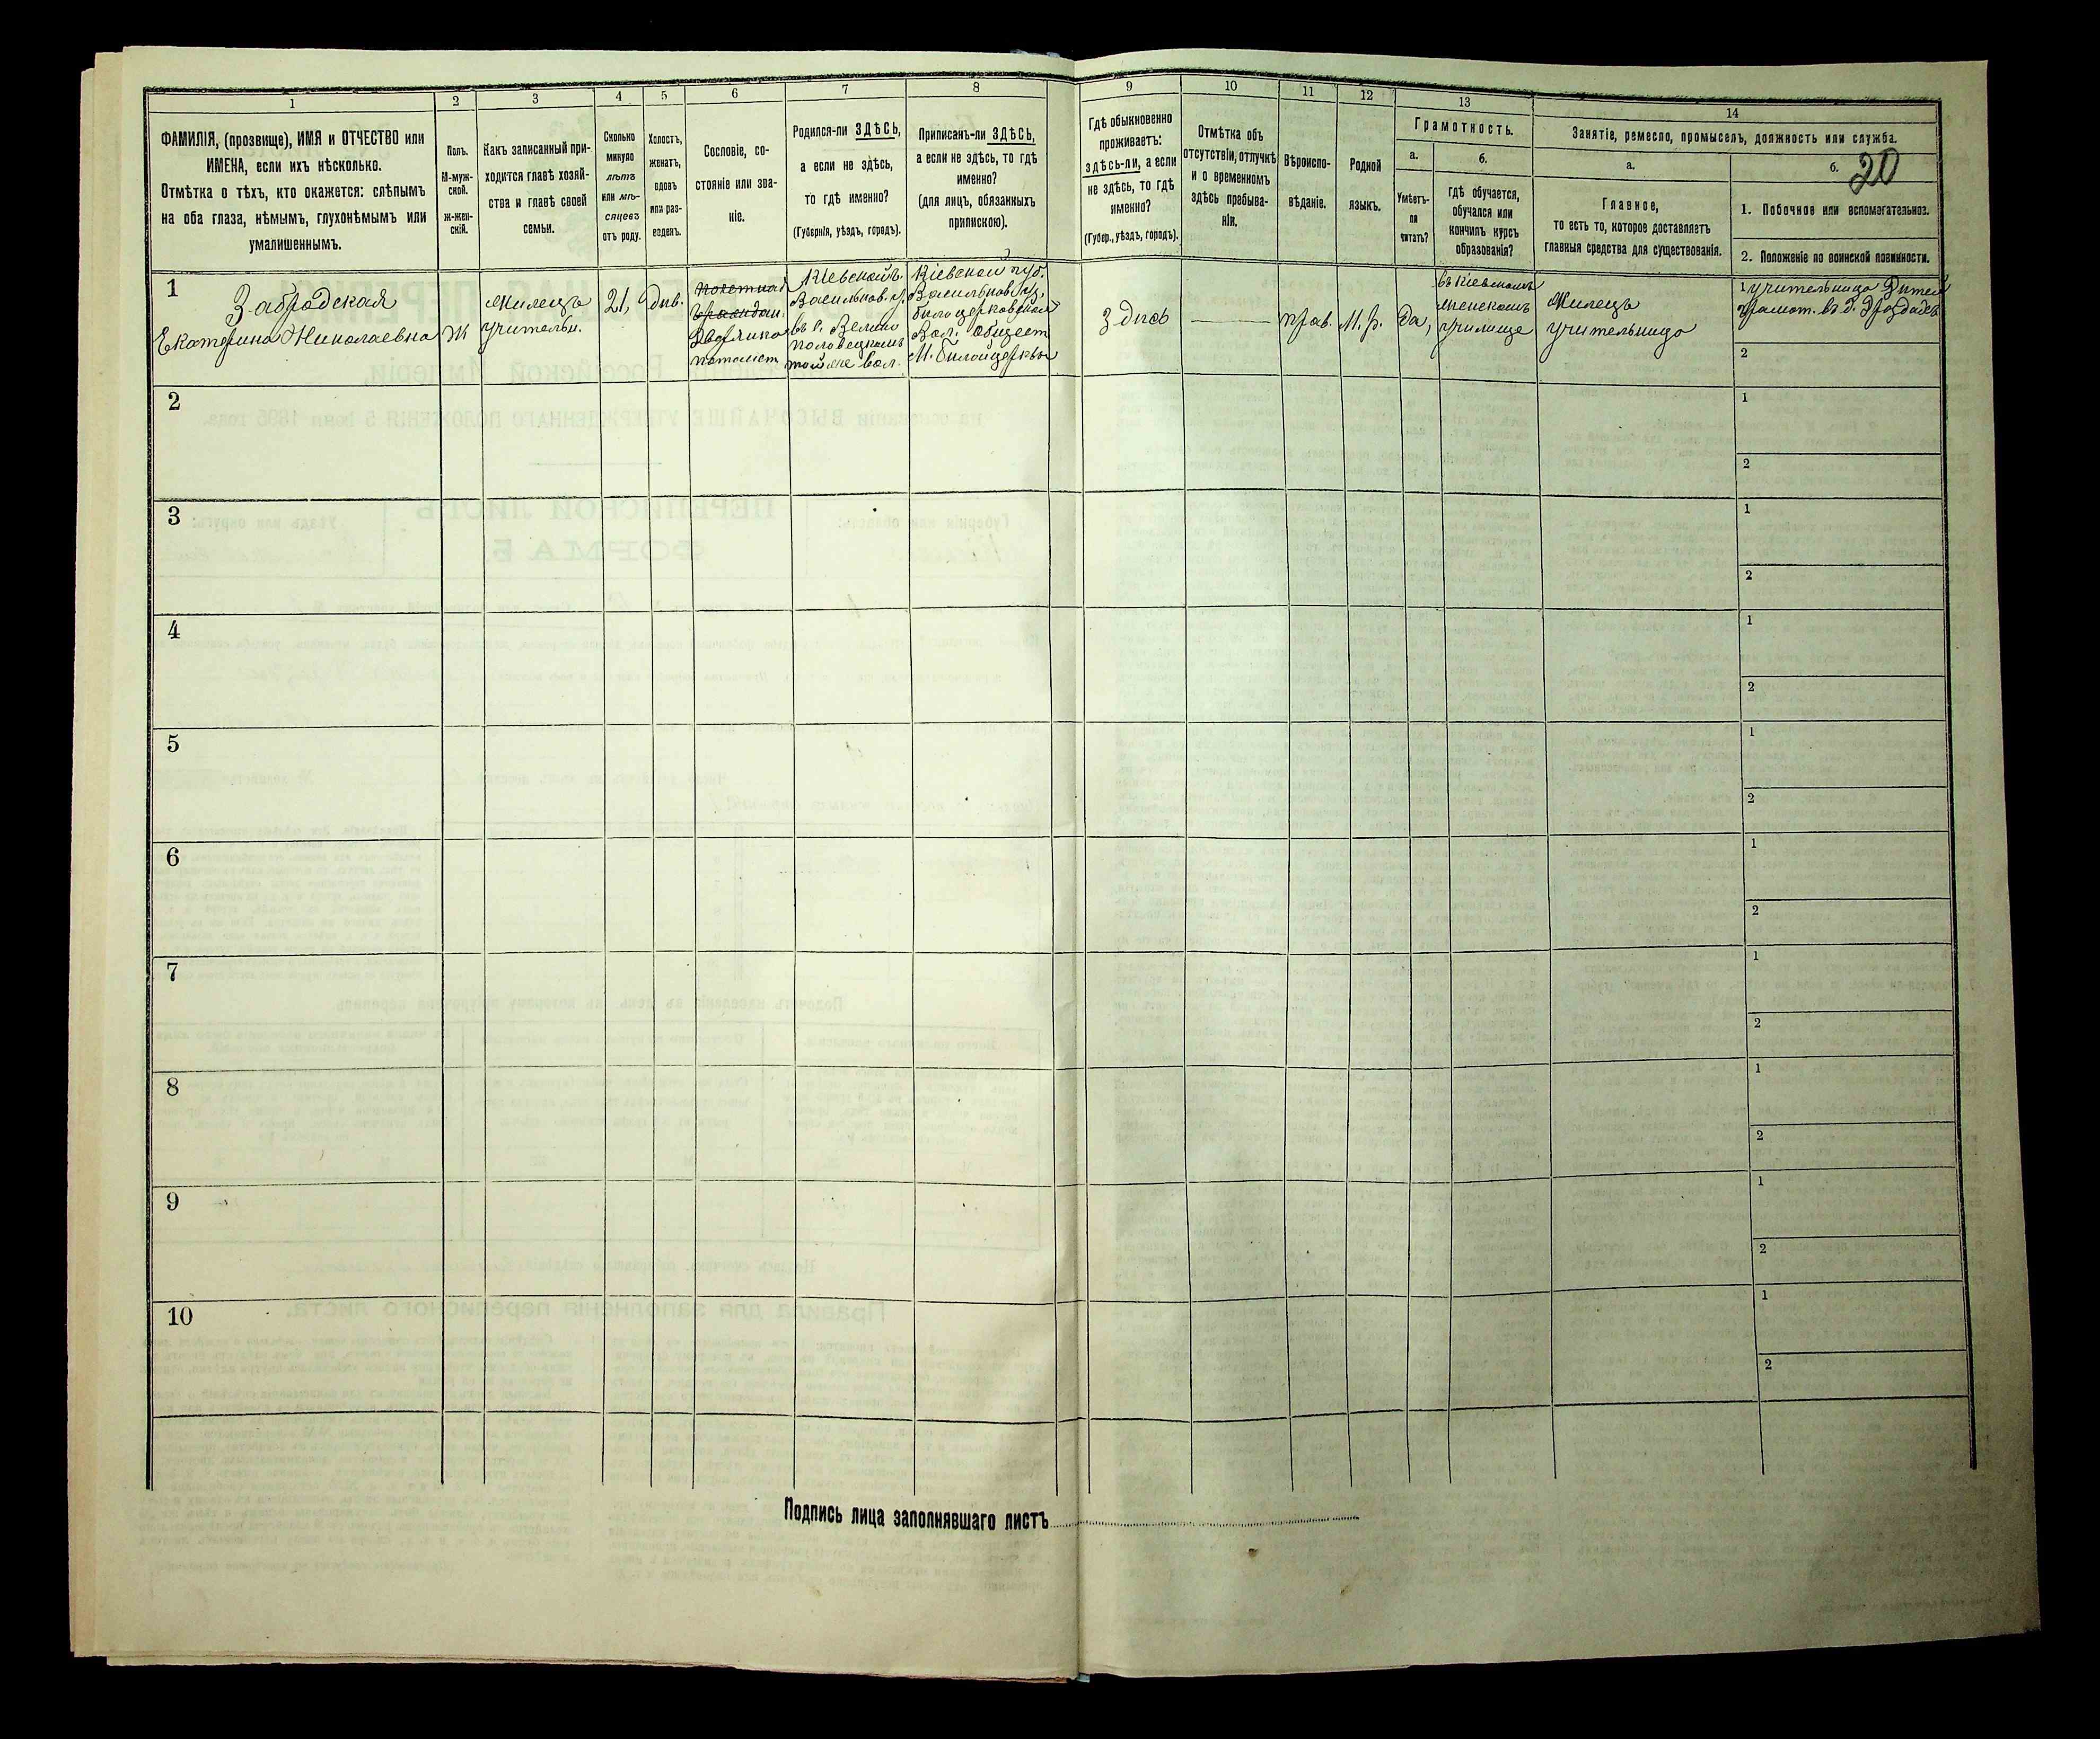 1
2
3
4
5
6
7
8
9
10
11
12
13
14
ФАМИЛІЯ, (прозвище), ИМЯ и ОТЧЕСТВО или
ИМЕНА, если ихъ нѣсколько.
Отмѣтка о тѣхъ, кто окажется: слѣпымъ
на оба глаза, нѣмымъ, глухонѣмымъ или
умалишеннымъ.
Полъ.
М-муж-
ской.
Ж-жен-
скій.
Какъ записанный при-
ходится главѣ хозяй-
ства и главѣ своей
семьи.
Сколько
минуло
лѣтъ
или мѣ-
сяцевъ
отъ роду.
Холостъ,
женатъ,
вдовъ
или раз-
веденъ.
Сословіе, со-
стояніе или зва-
ніе.
Родился-ли ЗДѢСЬ,
а если не здѣсь,
то гдѣ именно?
(Губернія, уѣздъ, городъ).
Приписанъ-ли ЗДѢСЬ,
а если не здѣсь, то гдѣ
именно?
(для лицъ, обязанныхъ
припискою).
Гдѣ обыкновенно
проживаетъ:
здѣсь-ли, а если
не здѣсь, то гдѣ
именно?
(Губер., уѣздъ, городъ).
Отмѣтка объ
отсутствіи, отлучкѣ
и о временномъ
здѣсь пребыва-
ніи.
Вѣроиспо-
вѣданіе.
Родной
языкъ.
Грамотность.
а.
Умѣетъ-
ли
читать?
б.
гдѣ обучается,
обучался или
кончилъ курсъ
образованія?
Занятіе, ремесло, промыселъ, должность или служба.
а.
Главное,
то есть то, которое доставляетъ
главныя средства для существованія.
б.
20
1. Побочное или вспомогательное.
2. Положеніе по воинской повинности.
1
Забродская
Екатерина Николаевна
Ж
Жилецъ
учительн.
21,
дѣв.
Почетная
Граждан.
Кіевской г.
Васильков. у.
въ с. Велико
половецкомъ
той же вол.
Кіевской губ.
Васильков. у.,
бѣлоцерковской
Вол. Общест
М. Бѣлой церквы
Здѣсь
прав.
М. р.
Да,
въ Кіевскомъ
женскомъ
училище
Жилецъ
учительница
1 учительница
грамот. въ д. Дроздахъ
2
2
1
2
3
1
2
4
1
2
5
1
2
6
1
2
7
1
2
8
1
2
9
1
2
10
1
2
Подпись лица заполнявшаго листъ